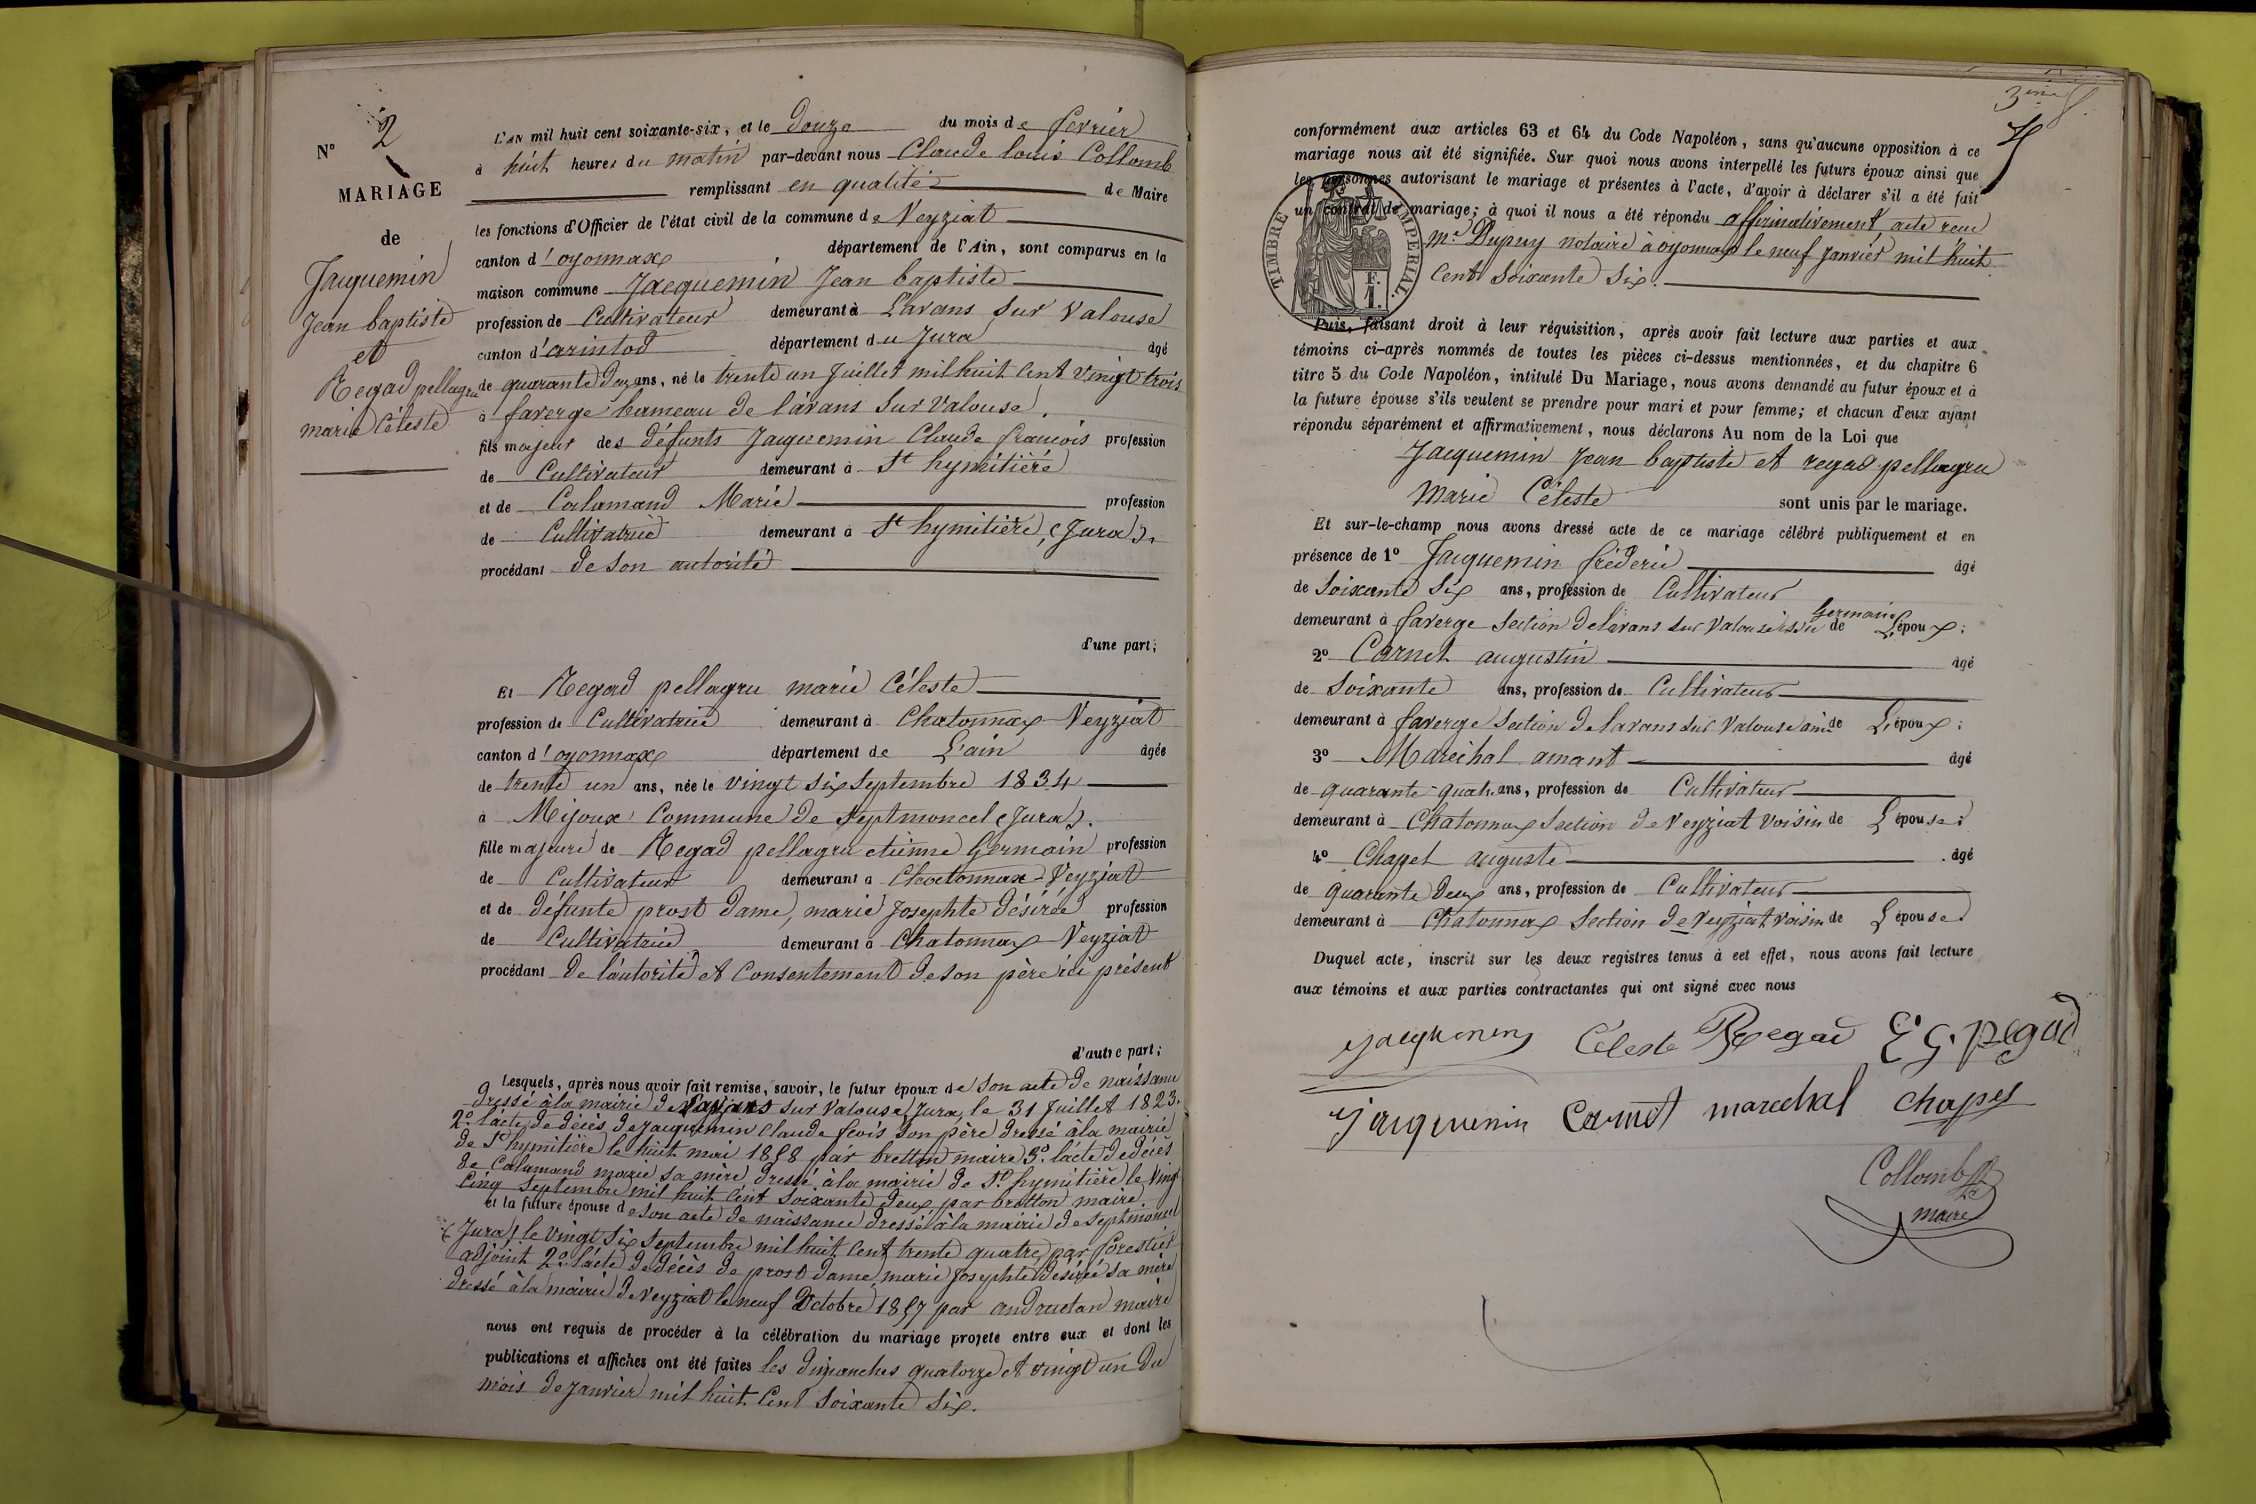 N° 2
MARIAGE
de
Jacquemin
Jean baptiste
et
Regad pellagru
marie Céleste
L'AN mil huit cent soixante-six, et le douze du mois de février
à huit heures du matin par-devant nous Claude louis Collomb
remplissant en qualité de Maire
les fonctions d'Officier de l'état civil de la commune de Veyziat
canton d'oyonnax département de l'Ain, sont comparus en la
maison commune Jacquemin Jean baptiste
profession de Cultivateur demeurant à Lavans sur Valouse
canton d'arintod département du Jura âgé
de quarante deux ans, né le trente un Juillet mil huit Cent vingt trois
à faverge hameau de lavans sur Valouse.
fils majeur des défunts Jacquemin Claude francois profession
de Cultivateur demeurant à St hymitière
et de Calamand Marie profession
de Cultivatrice demeurant à St hymitière, (Jura).
procédant de son autorité
d'une part;
Et Regad pellagru marie Céleste
profession de Cultivatrice demeurant à Chatonnax Veyziat
canton d'oyonnax département de L'ain âgée
de trente un ans, née le vingt six septembre 1834
à Mijoux Commune de Septmoncel (Jura).
fille majeure de Regad pellagru etienne Germain profession
de Cultivateur demeurant à Chatonnax Veyziat
et de défunte prost dame, marie Josephte désirée profession
de Cultivatrice demeurant à Chatonnax Veyziat
procédant de l'autorité et Consentement de son père ici présent
d'autre part;
Lesquels, après nous avoir fait remise, savoir, le futur époux de son acte de naissance
dressé à la mairie de Lavans sur Valouse Jura, le 31 Juillet 1823.
2° l'acte de décès de Jacquemin Claude fcois son père dressé à la mairie
de St hymitière le huit mai 1858 par bretton maire 3° l'acte de décès
de Calamand marie sa mère, dressé à la mairie de St hymitière le Vingt
Cinq Septembre mil huit Cent Soixante deux par bretton maire
et la future épouse de son acte de naissance dressé à la mairie de Septmoncel
(Jura) le vingt six septembre mil huit Cent trente quatre, par forestier
adjoint 2° l'acte de décès de prost dame, marie Josephte désirée sa mère
dressé à la mairie de Veyziat le neuf Octobre 1857 par andruetan maire
nous ont requis de procéder à la célébration du mariage projeté entre eux et dont les
publications et affiches ont été faites les dimanches quatorze et vingt un du
mois de Janvier mil huit Cent Soixante Six.
3ème
conformément aux articles 63 et 64 du Code Napoléon, sans qu'aucune opposition à ce
mariage nous ait été signifiée. Sur quoi nous avons interpellé les futurs époux ainsi que
les personnes autorisant le mariage et présentes à l'acte, d'avoir à déclarer s'il a été fait
un contrat de mariage; à quoi il nous a été répondu affirmativement acte reçu
Me Dupuy notaire à oyonnax le neuf Janvier mil huit
Cent Soixante Six.
TIMBRE IMPERIAL.
F.
1.
Puis, faisant droit à leur réquisition, après avoir fait lecture aux parties et aux
témoins ci-après nommés de toutes les pièces ci-dessus mentionnées, et du chapitre 6
titre 5 du Code Napoléon, intitulé Du Mariage, nous avons demandé au futur époux et à
la future épouse s'ils veulent se prendre pour mari et pour femme; et chacun d'eux ayant
répondu séparément et affirmativement, nous déclarons Au nom de la Loi que
Jacquemin Jean baptiste et regad pellagru
Marie Céleste sont unis par le mariage.
Et sur-le-champ nous avons dressé acte de ce mariage célébré publiquement et en
présence de 1° Jacquemin fréderic âgé
de Soixante Six ans, profession de Cultivateur
Germain
demeurant à faverge Section de lavans sur Valouse issu de L'époux;
2° Carnet augustin âgé
de Soixante ans, profession de Cultivateur
demeurant à faverge Section de lavans sur Valouse ami de L'époux;
3° Marechal amant âgé
de quarante quatre ans, profession de Cultivateur
demeurant à Chatonnax Section de Veyziat voisin de L'épouse;
4° Chapel auguste âgé
de quarante deux ans, profession de Cultivateur
demeurant à Chatonnax Section de Veyziat voisin de L'épouse.
Duquel acte, inscrit sur les deux registres tenus à cet effet, nous avons fait lecture
aux témoins et aux parties contractantes qui ont signé avec nous
Jacquemin Céleste Regad E G Regad
Jacquemin Carnet marechal chapel
Collomb
maire